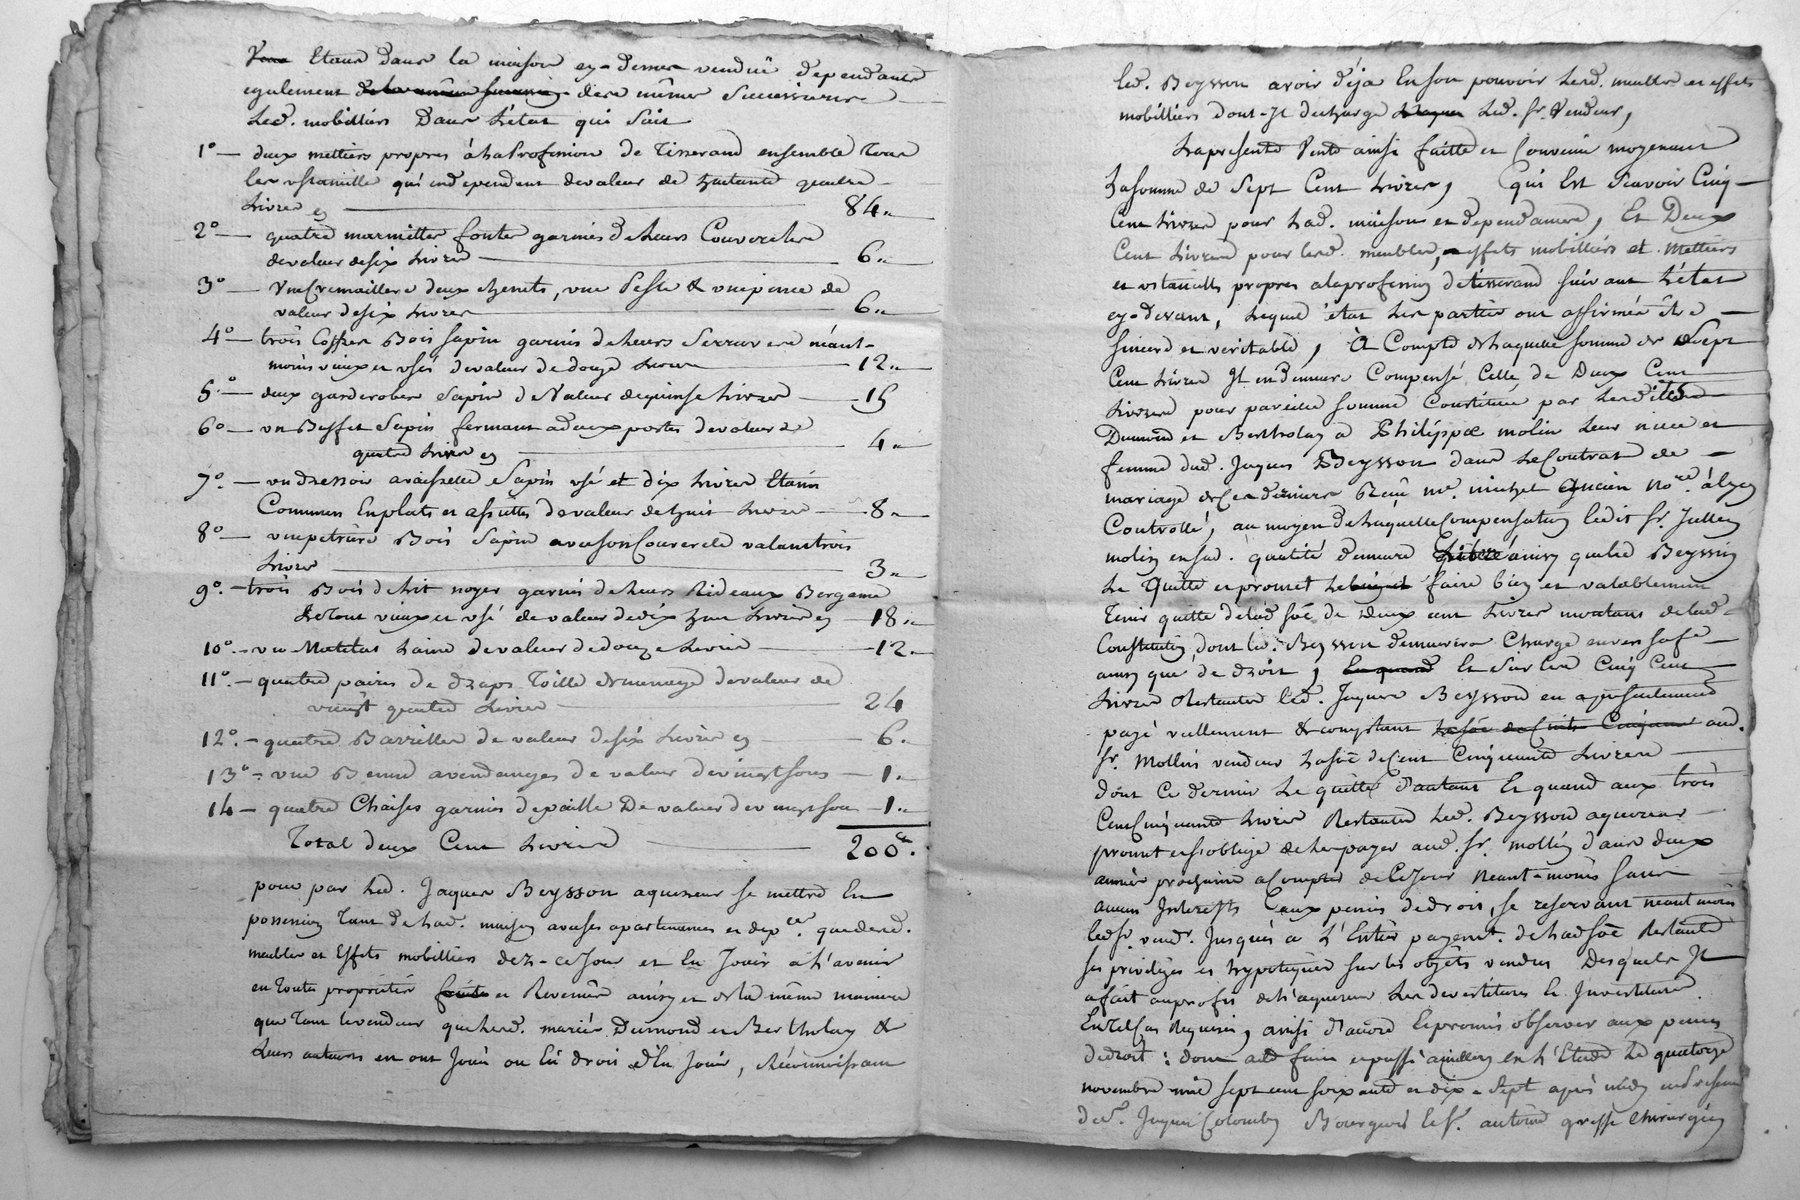 Etant dans la maison cy-dessus vendüe dependante
egalement de la même succession
Led. mobilliers Dans L'état qui suit
1° — deux mettiers propres à La Profession de Tisserand ensemble Tous
les ustancilles qui en dependent de valeur de huitante quatre
Livres cy — 84"
2° — quatre marmittes fontes garnies de Leurs Couvercles
de valeur de six Livres — 6"
3° — Une Cremaillere deux chenets, une Pesle & une pince de
valeur de six Livres — 6"
4° — trois Coffres Bois sapin garnis de Leurs Serrures néant-
moins vieux et usés de valeur de douze Livres — 12"
5° — deux garderobes Sapin de Valeur de quinse Livres — 15
6° — un Buffet Sapin fermant a deux portes de valeur de
quatre Livres cy — 4"
7° — un dressoir a vaisselle Sapin usé et dix Livres Etain
Commun En plats et assiettes de valeur de huit Livres — 8"
8° — une petrière Bois Sapin avec son Couvercle valant trois
Livres — 3"
9° — trois Bois de Lit noyer garnis de Leurs Rideaux Bergame
Le Tout vieux et usé de valeur de dix huit Livres cy — 18"
10° — un Matelat Laine de valeur de douze Livres — 12"
11° — quatre paires de draps Toille de menage de valeur de
vingt quatre Livres — 24
12° — quatre Barrilles de valeur de six Livres cy — 6"
13° — une Benne a vendanges de valeur de vingt sous — 1"
14 — quatre Chaises garnies de paille De valeur de vingt sou — 1"
Total deux Cent Livres — 200"
pour par Led. Jaques Beysson aquereur se mettre En
possession Tant de Lad. maison avec ses apartenances et dep.ces que desd.
meubles et Effets mobilliers dez-ce Jour et En Jouir à L'avenir
en Toutte proprieté et Revenus ainsy et de la même maniere
que Tant le vendeur que Lesd. mariés Dumond et Bertholay &
Leurs auteurs en ont Joüi ou Eü droit d'En Jouir, Reconnoissant
led. Beysson avoir déja En son pouvoir Lesd. meubles et effets
mobilliers dont Il decharge Led. Sr. Vendeur,
La presente Vente ainsi faitte et Convenue moyenant
La somme de Sept Cent Livres, qui Est Scavoir Cinq
Cent Livres pour Lad. maison et dependances, Et Deux
Cent Livres pour lesd. meubles, effets mobilliers et Mettiers
et ustancilles propres a la profession de tisserand suivant L'état
cy-devant, Lequel état Les parties ont affirmé être
Sincere et veritable, A Compte de Laquelle somme de Sept
Cent Livres Il en demeure Compensé Celle de Deux Cent
Livres pour pareille somme Constituée par Lesdittes
Dumond et Bertholay a Philippe molin Leur niece et
femme dud. Jaques Beysson dans Le Contrat de
mariage de Ces derniers Reçu me. michel ancien Nore.
Controllé, au moyen de Laquelle Compensation ledit Sr. Jullien
molin en sad. qualité demeure quitte ainsy que led Beysson
Le Quitte et promet faire bien et valablement
Tenir quitte de lad sôe de deux cent Livres montant de lad.
Constitution, dont led. Beysson demeurera Chargé envers sa fe.
ainsy que de droit, Et Sur Les Cinq Cent
Livres Restantes led. Jaques Beysson en a presentement
payé reellement & comptant aud.
Sr. Mollin vendeur La sôe de Cent Cinquante Livres
dont Ce dernier Le quitte d'autant Et quand aux trois
Cent Cinquante Livres Restantes Led. Beysson aquereur
promet et s'oblige de Les payer aud. Sr. mollin dans deux
années prochaines a Compter de Ce Jour Neant-moins sans
aucun Interests aux peines de droit, se reservant neantmoins
led Sr. vendr. Jusques a L'Entier payemt. de Lad sôe Restante
ses privileges et hypotéques sur les objets vendus Desquels Il
a fait au profit de L'aquereur Les devestitures et Investitures
En Tel Cas Requises, ainsi d'accord Le promis observer aux peines
de droit: dont acte fait et passé en L'Etude Le quatorze
novembre mil sept cent soixante et dix-sept après midy en Presence
de Sr. Jaques Colomby Bourgeois le Sr. antoine chirurgien